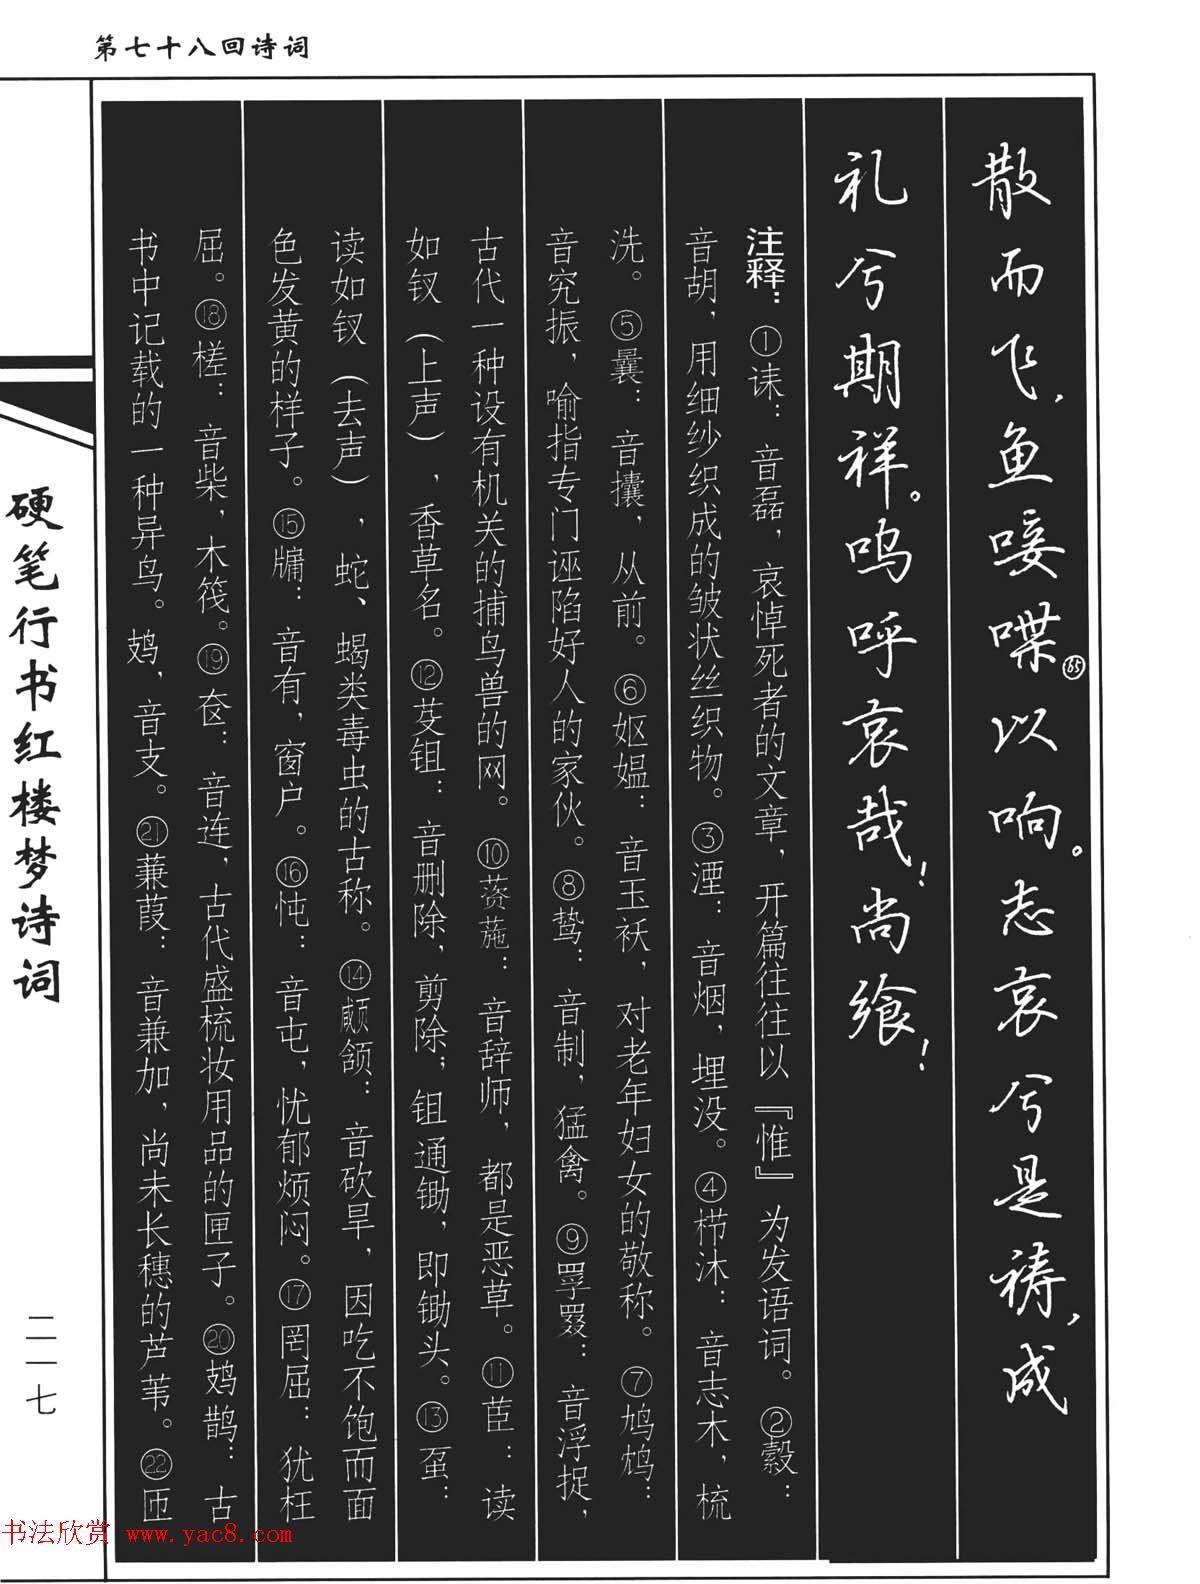 第七十八回诗词
散而飞，鱼唼喋㊿以响。志哀兮是祷，成
礼兮期祥。呜呼哀哉！尚飨！
注释：①诔：音磊，哀悼死者的文章，开篇往往以『惟』为发语词。②縠：
音胡，用细纱织成的皱状丝织物。③湮：音烟，埋没。④栉沐：音志木，梳
洗。⑤曩：音攮，从前。⑥妪媪：音玉袄，对老年妇女的敬称。⑦鸠鸩：
音究振，喻指专门诬陷好人的家伙。⑧鸷：音制，猛禽。⑨罦罬：音浮捉，
古代一种设有机关的捕鸟兽的网。⑩薋葹：音辞师，都是恶草。⑪茝：读
如钗（上声），香草名。⑫芟鉏：音删除，剪除；鉏通锄，即锄头。⑬虿：
读如钗（去声），蛇、蝎类毒虫的古称。⑭顑颔：音砍旱，因吃不饱而面
色发黄的样子。⑮牖：音有，窗户。⑯忳：音屯，忧郁烦闷。⑰罔屈：犹枉
屈。⑱槎：音柴，木筏。⑲奁：音连，古代盛梳妆用品的匣子。⑳鳷鹊：古
书中记载的一种异鸟。鳷，音支。㉑蒹葭：音兼加，尚未长穗的芦苇。㉒匝
硬笔行书红楼梦诗词
二一七
书法欣赏 www.yac8.com